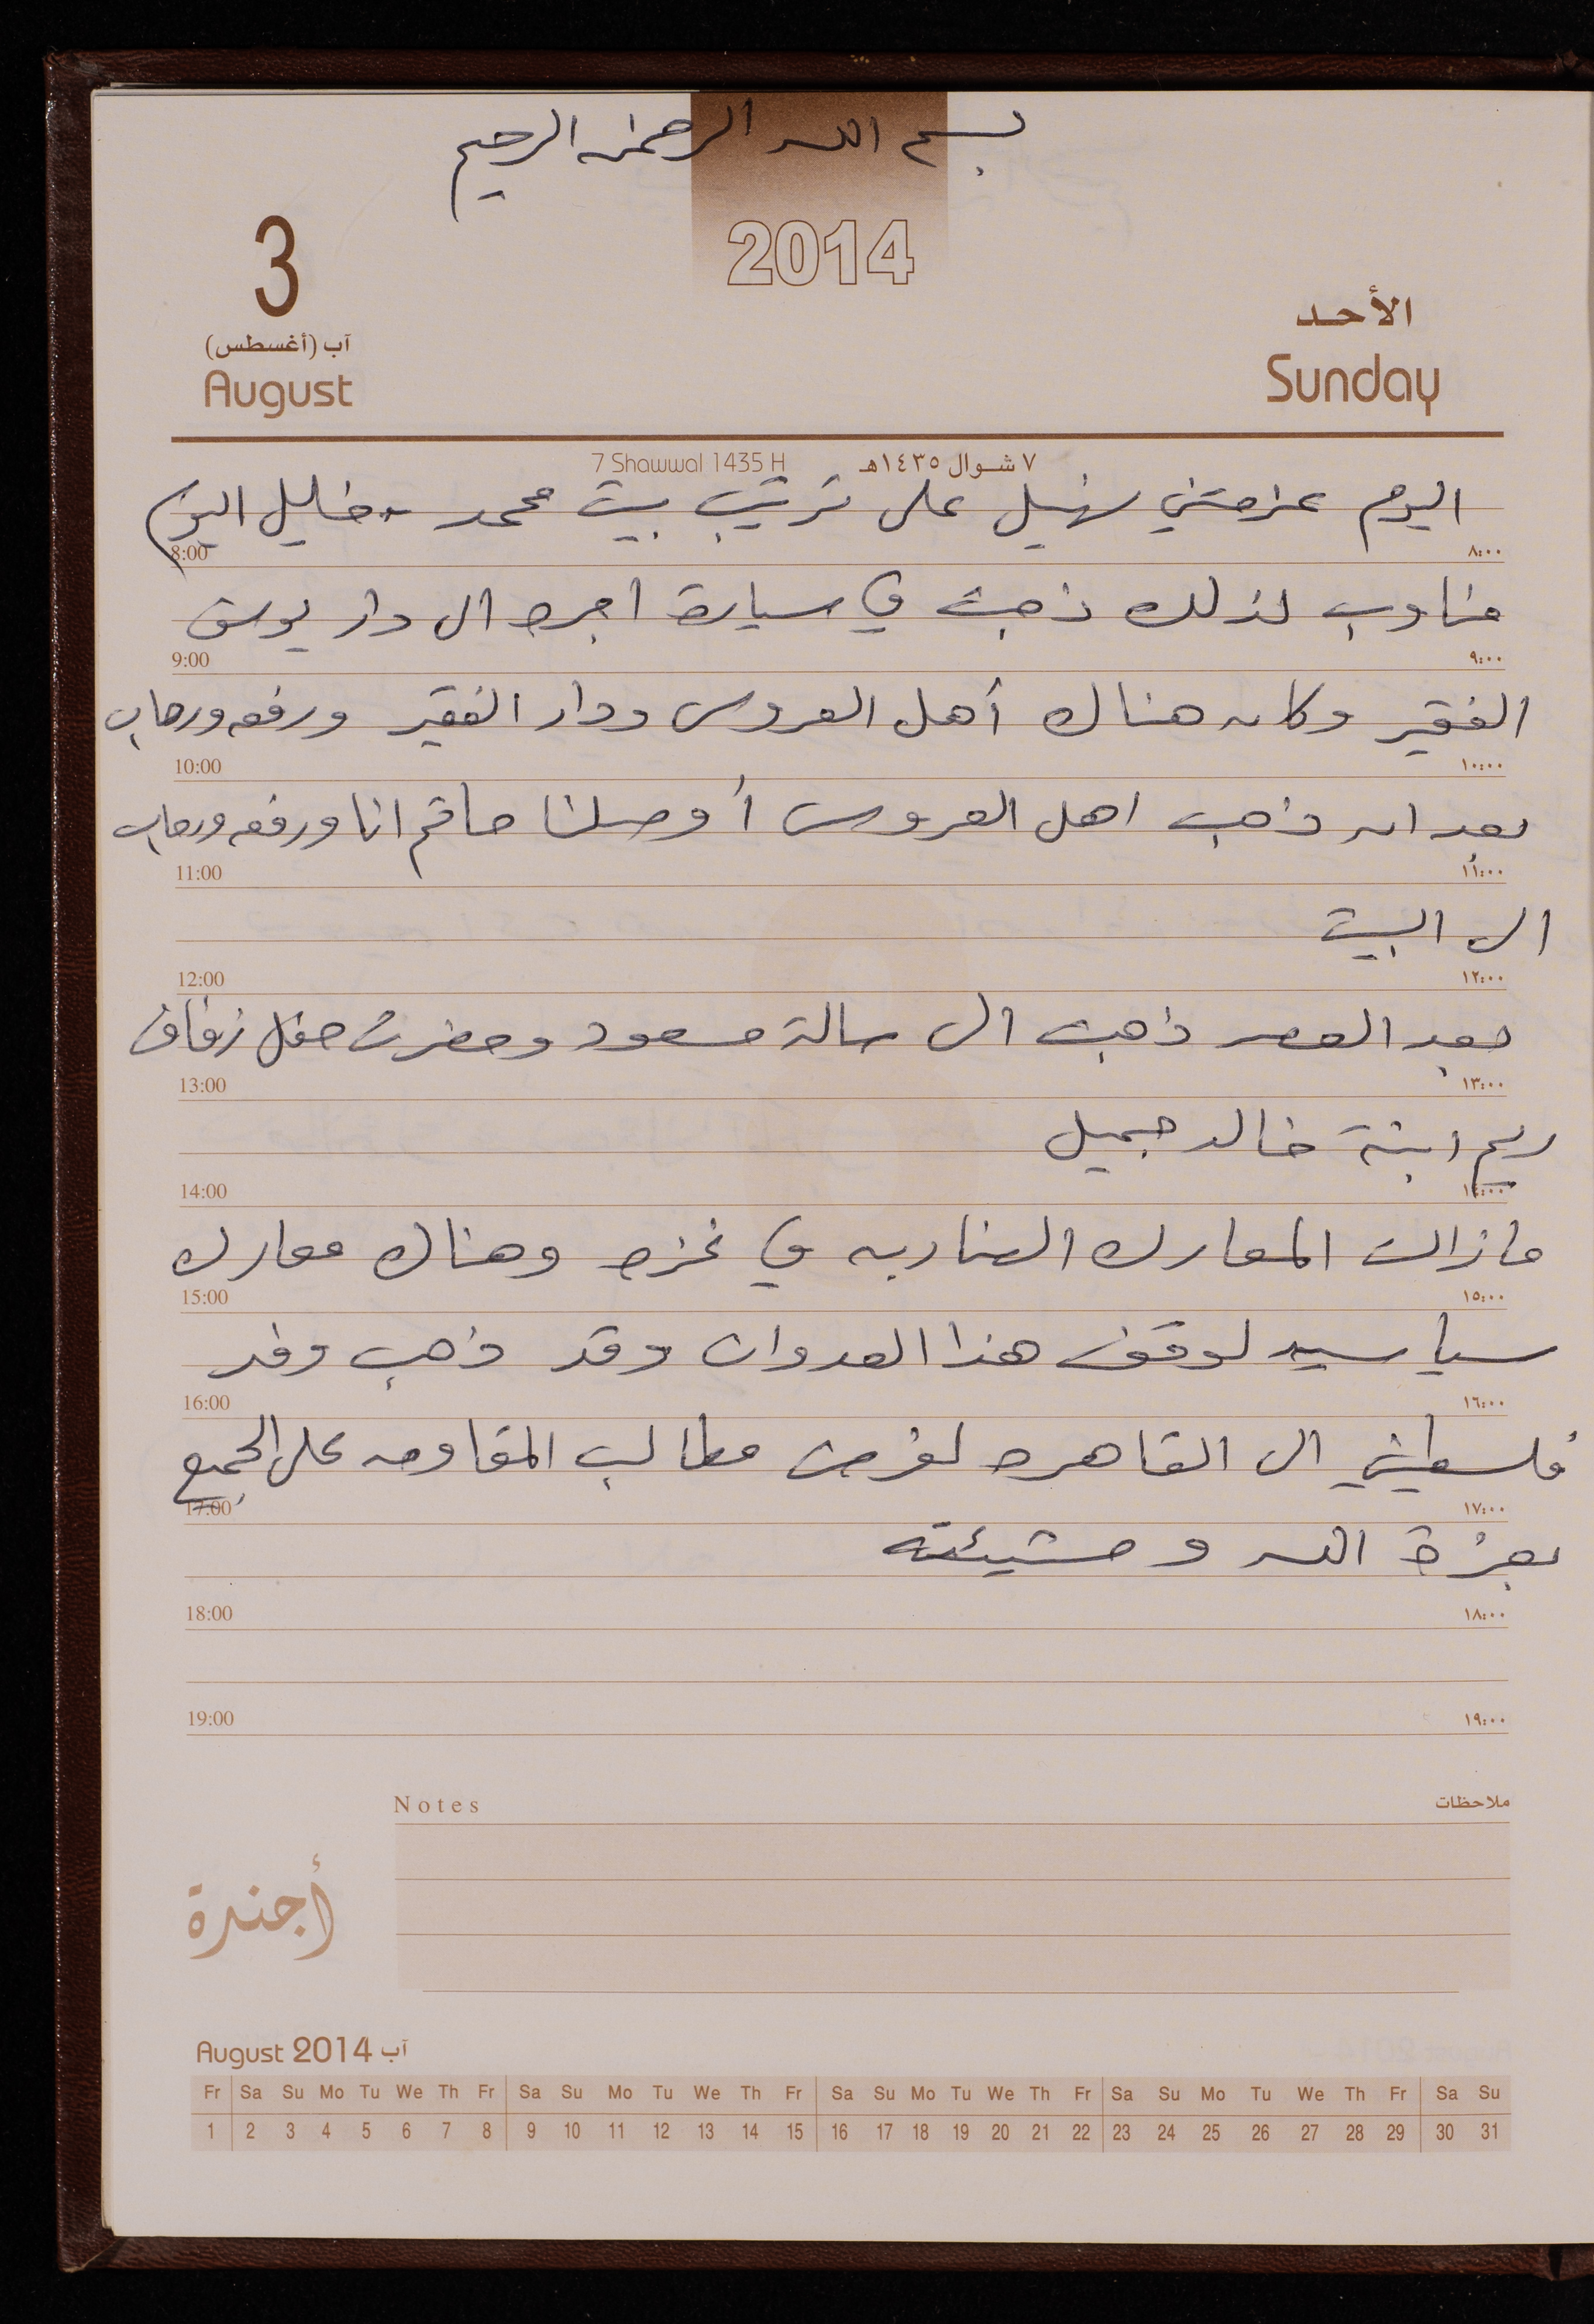 بسم الله الرحمن الرحيم
2014
3
آب (أغسطس)
August
الأحد
Sunday
7 Shawwal 1435 H ٧ شوال ١٤٣٥هـ
اليوم عزمتني سهيل على ترتيب بيت محمد خليل
8:00 ٨:٠٠
مناوب لذلك ذهبت في سيارة اجره الى دار يوسف
9:00 ٩:٠٠
الفقير وكان هناك أهل العروس ودار الفقير ورفعه ورحاب
10:00 ١٠:٠٠
بعد ان ذهب اهل العروس أوصلنا حاتم انا ورفعه ورحاب
11:00 ١١:٠٠
الى البيت
12:00 ١٢:٠٠
بعد العصر ذهبت الى صالة مسعود وحضرت حفل زفاف
13:00 ١٣:٠٠
ريم ابنة خالد جميل
14:00 ١٤:٠٠
مازالت المعارك الضاربه في غزه وهناك معارك
15:00 ١٥:٠٠
سياسيه لوقف هذا العدوان وقد ذهب وفد
16:00 ١٦:٠٠
فلسطيني الى القاهره لفرض مطالب المقاومه على الجميع
17:00 ١٧:٠٠
بعزة الله ومشيئته
18:00 ١٨:٠٠
19:00 ١٩:٠٠
Notes ملاحظات
أجندة
August 2014 آب
Fr Sa Su Mo Tu We Th Fr Sa Su Mo Tu We Th Fr Sa Su Mo Tu We Th Fr Sa Su Mo Tu We Th Fr Sa Su
1 2 3 4 5 6 7 8 9 10 11 12 13 14 15 16 17 18 19 20 21 22 23 24 25 26 27 28 29 30 31